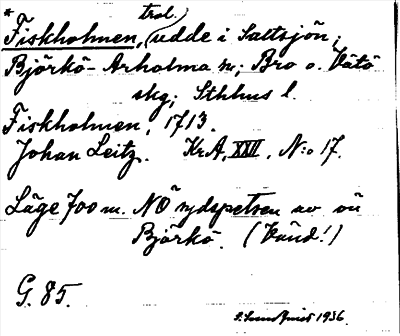 * Fiskholmen, (trol. udde i Saltsjön;
Björkö-Arholma sn; Bro o. Vätö
skg; Sthlms l.
Fiskholmen, 1713.
Johan Leitz. KrA, XXII, N:o 17.
Läge 700 m. NÖ sydspetsen av ön
Björkö. (Vänd!)
G. 85.
1936.